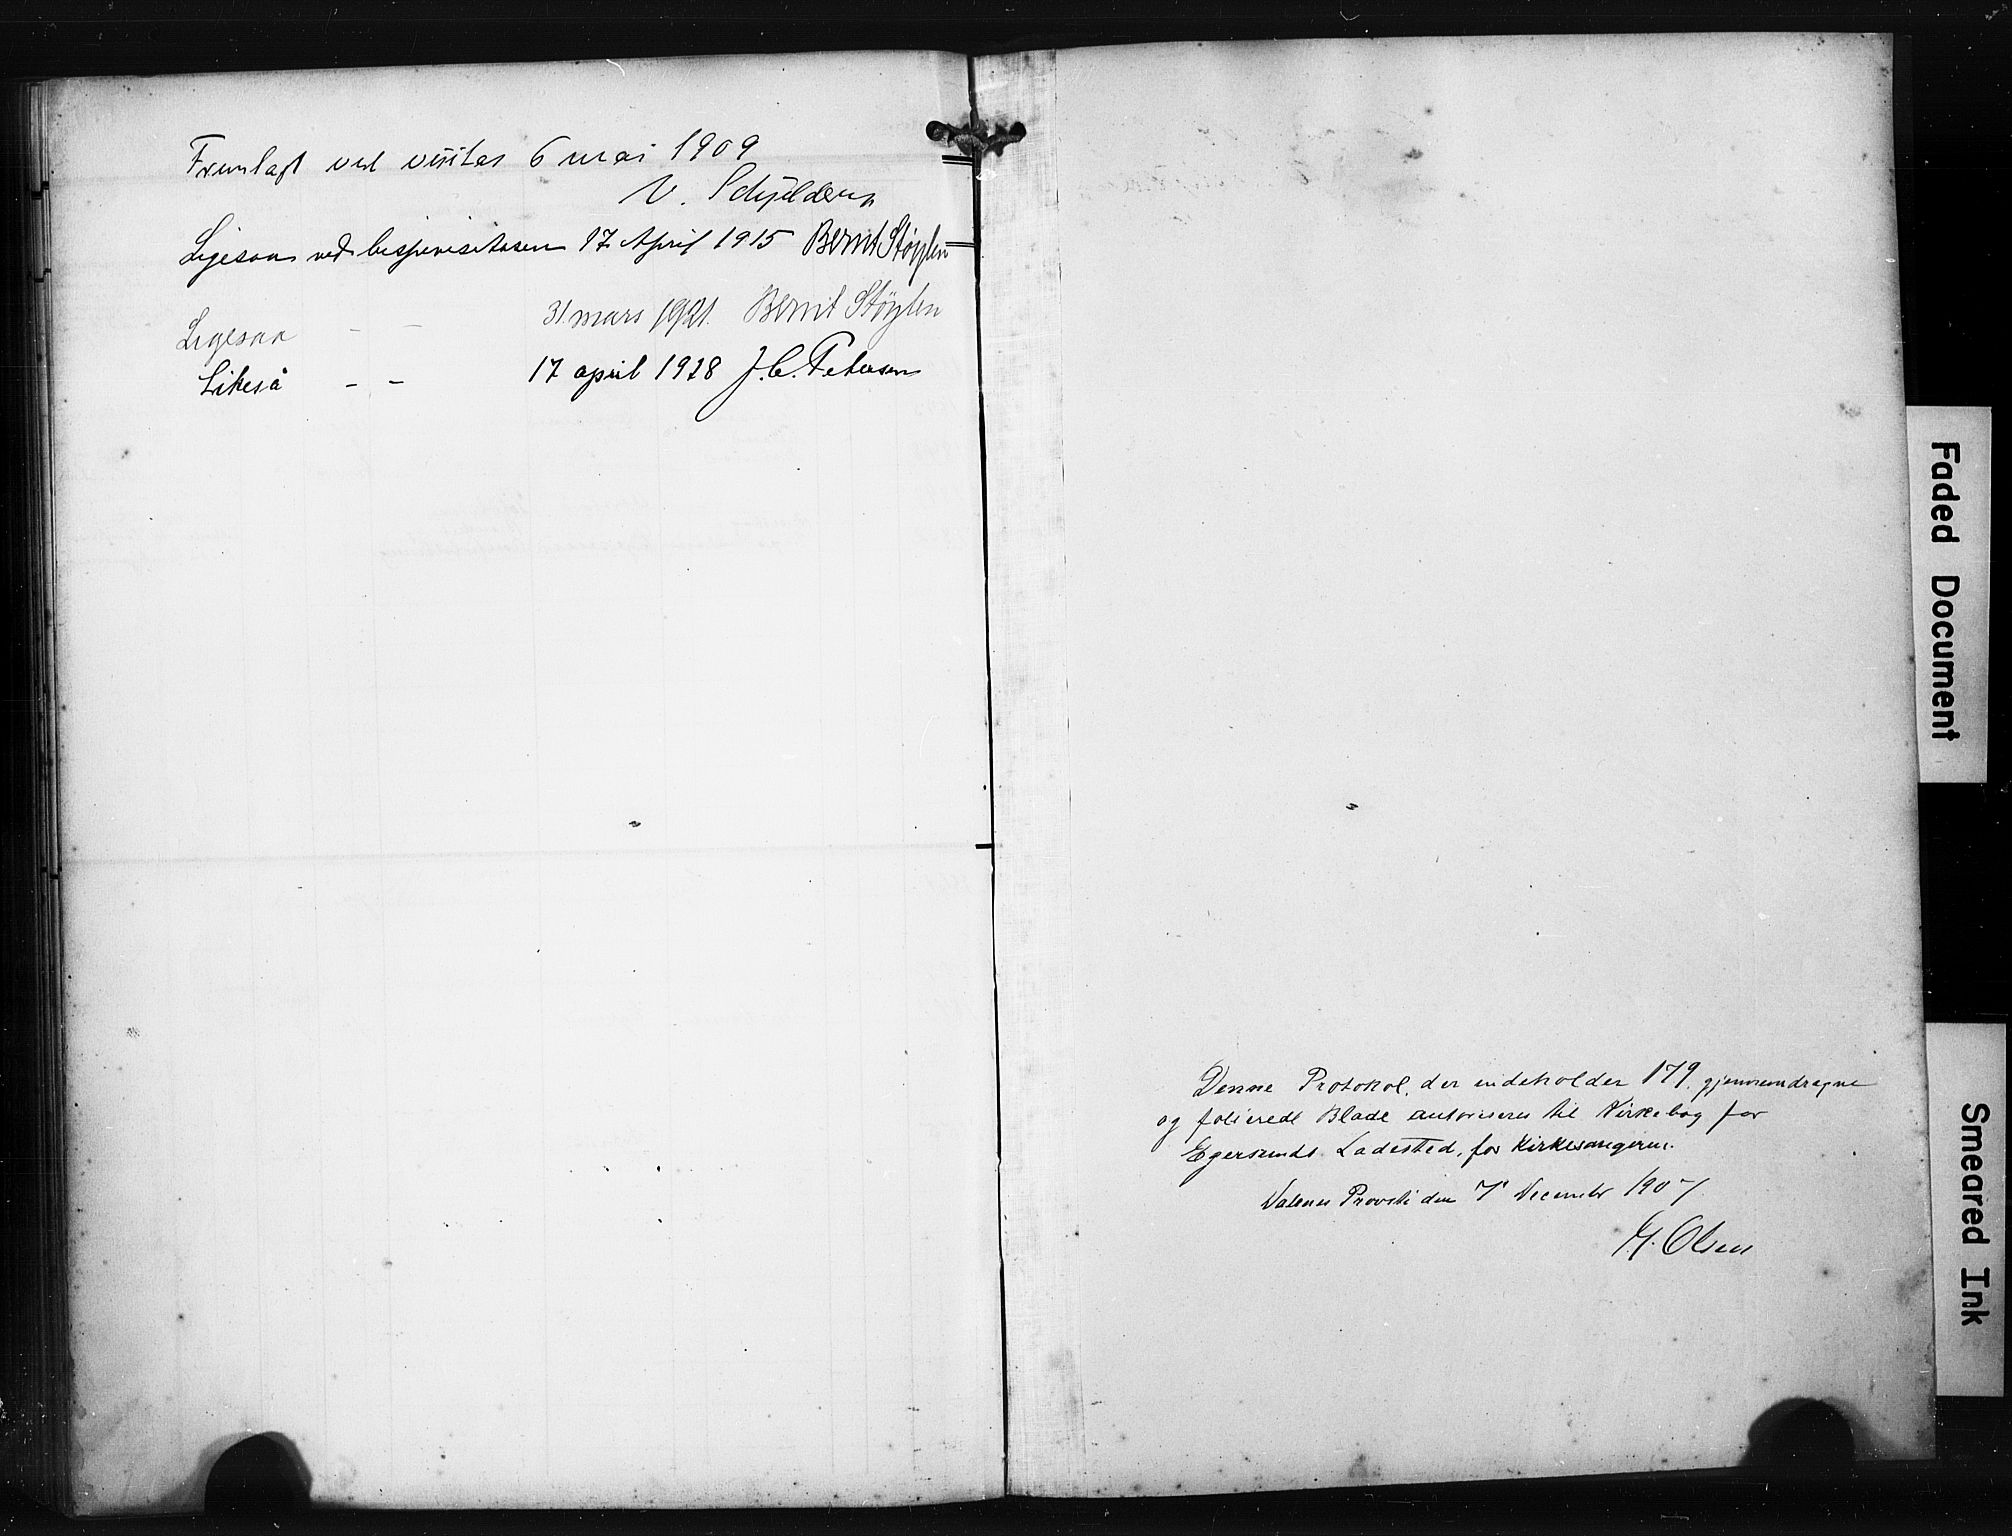 Fremlagt ved visitas 6 mai 1909
V. Schjelderup
Ligesaa ved bispevisitasen 17 April 1915 Bernt Støylen
Ligesaa - - 31 mars 1921. Bernt Støylen
Likeså - - 17 april 1928 J. C. Petersen
Denne Protokol, der indeholder 179 gjennemdragne
og folierede Blade autoriseres til Kirkebog for
Egersunds Ladested, for Kirkesangeren.
Dalenes Provsti den 7' December 1907
G. Olsen
Faded Document
Smeared Ink